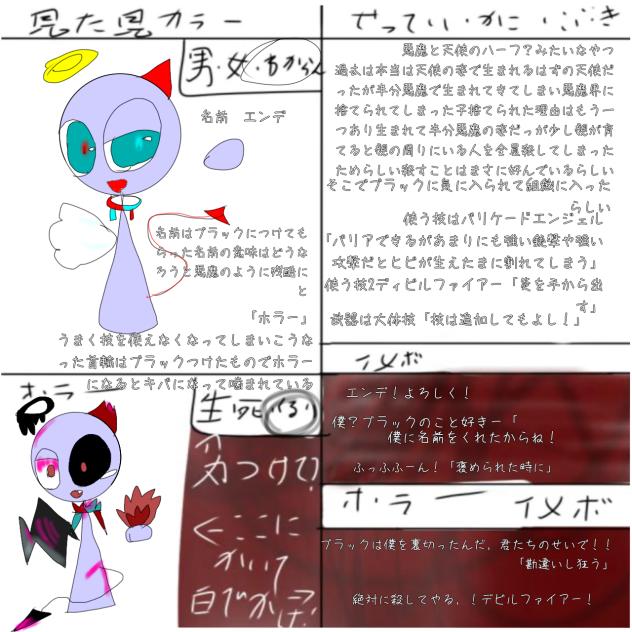 見た見カラー
男・女・わからん
名前 エンデ
名前はブラックにつけても
らった名前の意味はどうな
ろうと悪魔のように残酷に
と
「ホラー」
うまく技を使えなくなってしまいこうな
った首輪はブラックつけたものでホラー
になるとキバになって噛まれている
せっていいかに
悪魔と天使のハーフ?みたいなやつ
過去は本当は天使の姿で生まれるはずの天使だ
ったが半分悪魔で生まれてきてしまい悪魔界に
捨てられてしまった子捨てられた理由はもう一
つあり生まれて半分悪魔の姿だっが少し親が育
てると親の周りにいる人を全員殺してしまった
ためらしい殺すことはまさに好んでいるらしい
そこでブラックに気に入られて組織に入った
らしい
使う技はバリケードエンジェル
「バリアできるがあまりにも強い銃撃や強い
攻撃だととどが生えたまに割れてしまう」
使う技2ディビルファイアー「炎を手から出
す」
武器は大体技「技は追加してもよし!」
イメボ
エンデ!よろしく!
僕?ブラックのこと好きー「
僕に名前をくれたからね!
ふっふふーん!「褒められた時に」
ホラー
生死
つけて
←ここに
かいて
白でかく
ホラーイメボ
ブラックは僕を裏切ったんだ、君たちのせいで!!
「勘違いし狂う」
絶対に殺してやる、!デビルファイアー!